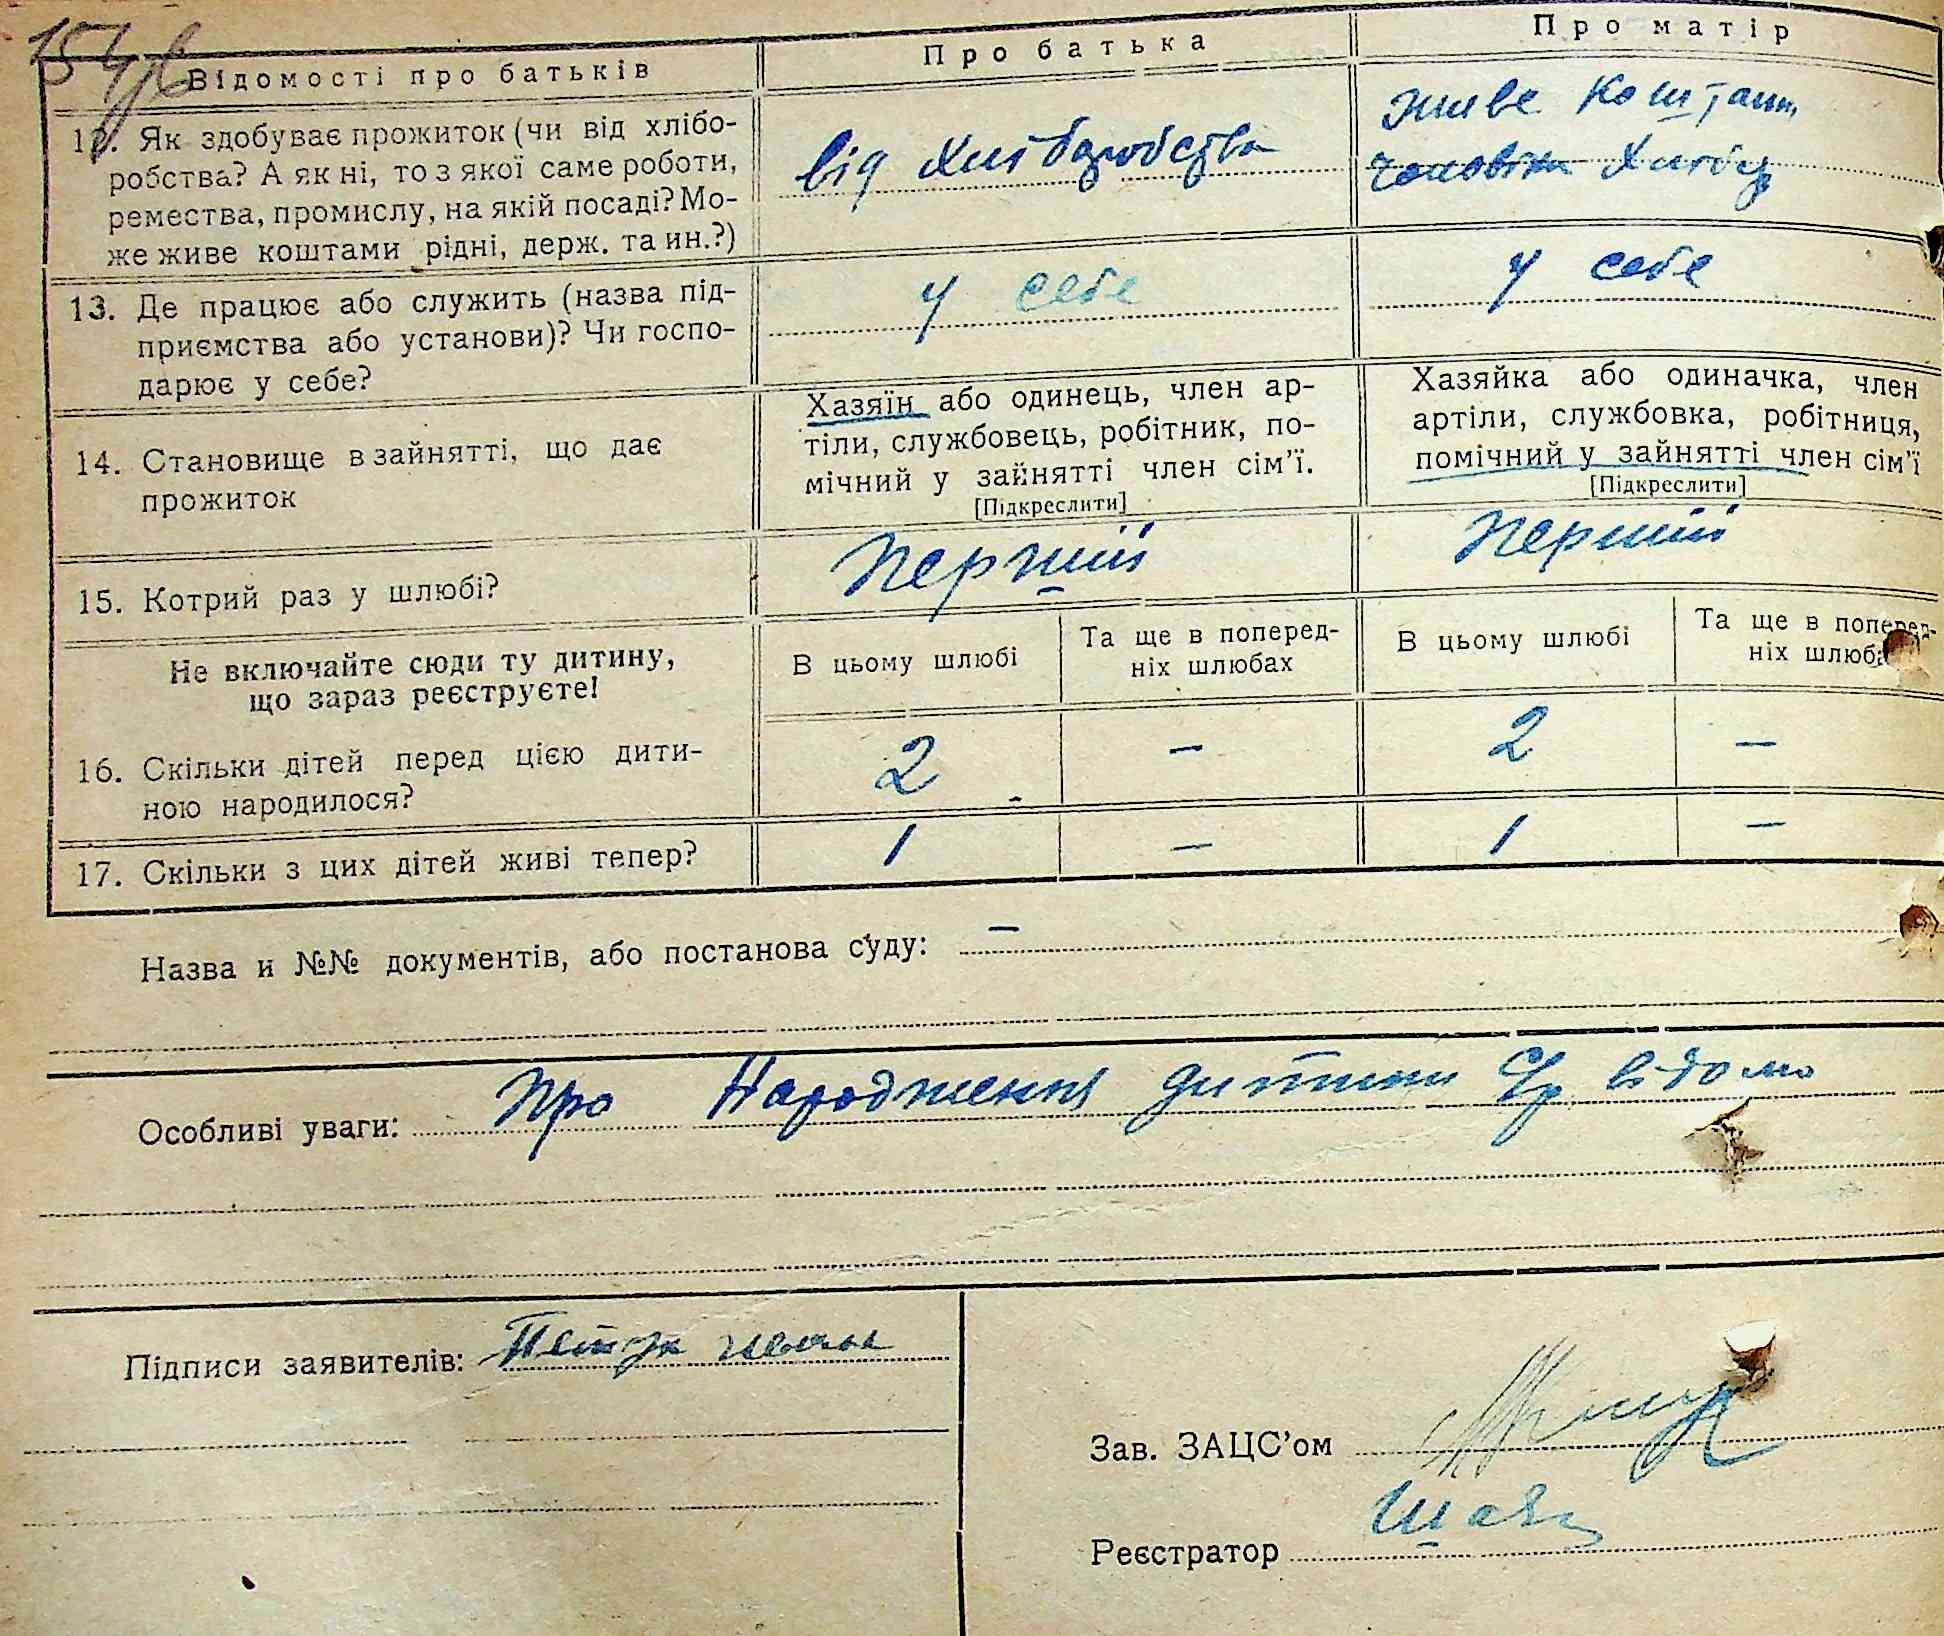 Відомості про батьків
Про батька
Про матір
12. Як здобуває прожиток (чи від хлібо-
робства? А як ні, то з якої саме роботи,
ремества, промислу, на якій посаді? Мо-
же живе коштами рідні, держ. та ин.?)
від хліборобства
живе коштам
чоловіка
13. Де працює або служить (назва під-
приємства або установи)? Чи госпо-
дарює у себе?
у себе
у себе
14. Становище в зайнятті, що дає
прожиток
Хазяїн або одинець, член ар-
тіли, службовець, робітник, по-
мічний у зайнятті член сім’ї.
[Підкреслити]
Хазяйка або одиначка, член
артіли, службовка, робітниця,
помічний у зайнятті член сім’ї
[Підкреслити]
15. Котрий раз у шлюбі?
Перший
Перший
Не включайте сюди ту дитину,
що зараз реєструєте!
В цьому шлюбі
Та ще в поперед-
ніх шлюбах
В цьому шлюбі
Та ще в поперед-
ніх шлюба
16. Скільки дітей перед цією дити-
ною народилося?
2
–
2
–
17. Скільки з цих дітей живі тепер?
1
–
1
–
Назва и №№ документів, або постанова суду: –
Особливі уваги: Про Народження дитини С/р відомо
Підписи заявителів:
Зав. ЗАЦС’ом
Реєстратор